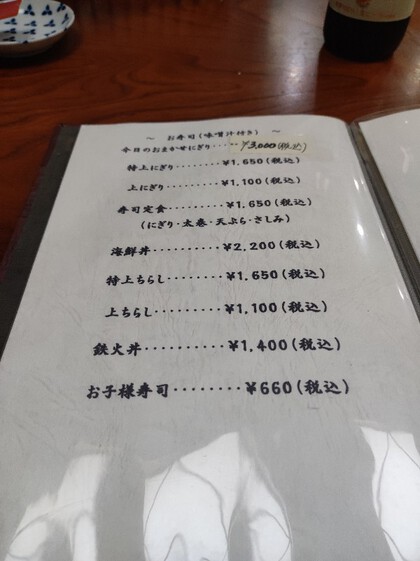 ～ お寿司(味噌汁付き) ～
今日のおまかせにぎり・・・・・¥3,000(税込)
特上にぎり・・・・・・・・¥1,650(税込)
上にぎり・・・・・・・・・¥1,100(税込)
寿司定食・・・・・・・・・¥1,650(税込)
(にぎり・太巻・天ぷら・さしみ)
海鮮丼・・・・・・・・・・¥2,200(税込)
特上ちらし・・・・・・・・¥1,650(税込)
上ちらし・・・・・・・・・¥1,100(税込)
鉄火丼・・・・・・・・・・¥1,400(税込)
お子様寿司・・・・・・・・¥660(税込)